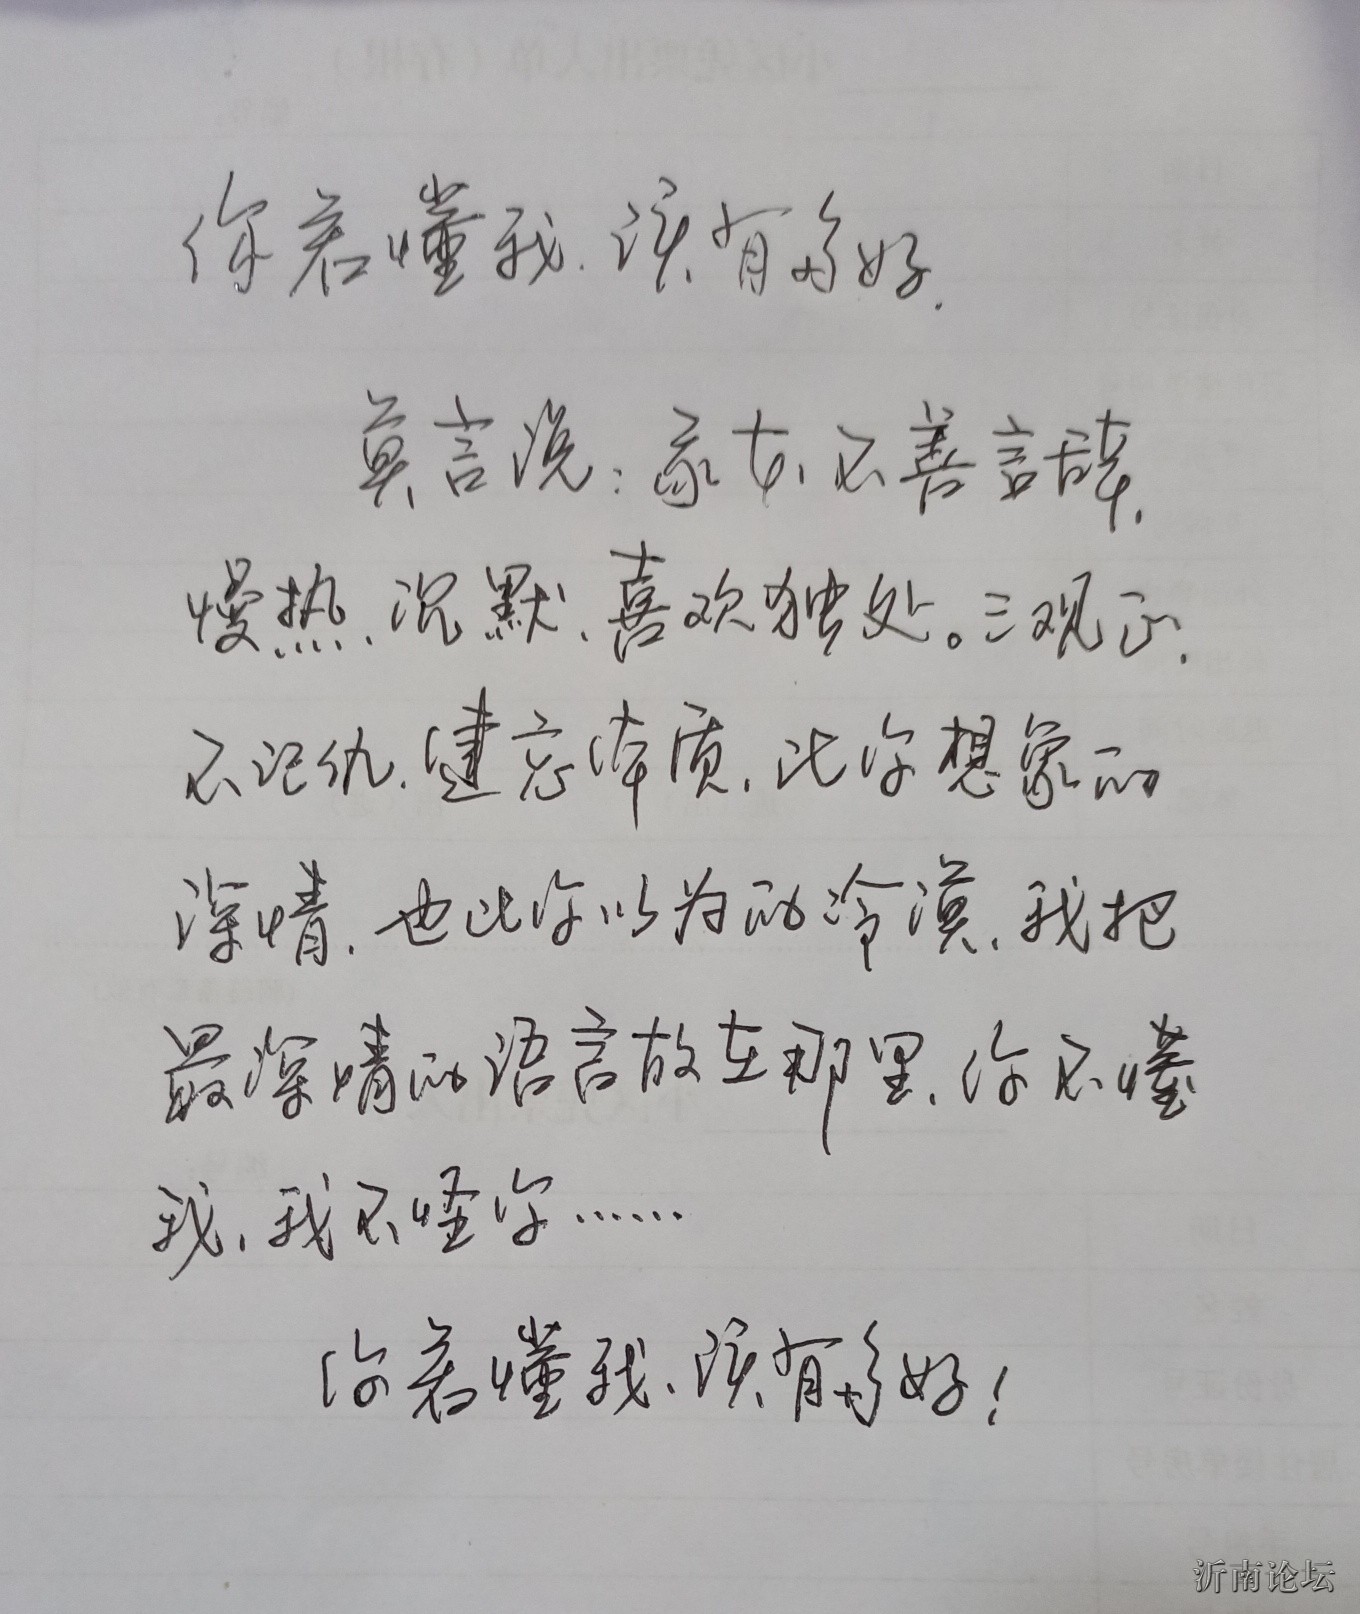 你若懂我、该有多好.
莫言说:不善言辞、
慢热、沉默、喜欢独处。三观正、
不记仇、健忘体质、比你想象的
深情、也比你以为的冷漠、我把
最深情的语言放在那里、你不懂
我、我不怪你……
你若懂我、该有多好!
沂南论坛